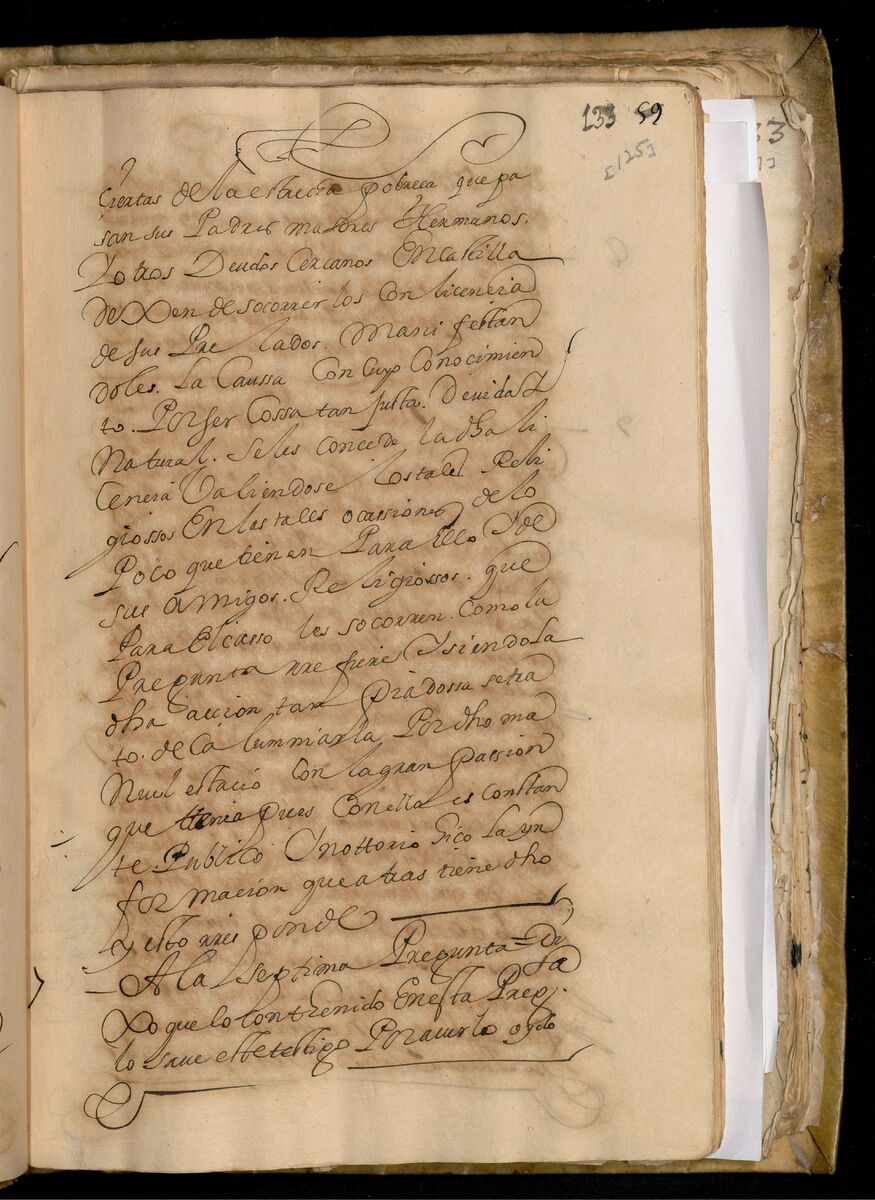 133 59
51253
ciertas de la estrecha pobreca que pa
san sus Padres madres Hermanos.
Y otros Deudos Cercanos En Castilla
de Xen de socorrerlos Con licencia
de sus Prelados. Manifestan
doles. La Caussa Con cuyo Conocimien
to. Por ser Cossa tan justa. Devida Y
Natural. Se les concede la dha li
cencia Valiendose los tales Reli
giossos En las tales ocassiones de lo
Poco que tienen Para Ello Y de
sus amigos. Religiossos. que
Para El casso les socorren. Como la
Pregunta rrefiere Y siendo la
dha accion tan piadossa se tra
to. de Calumniarla Por dho ma
nuel estacio con la gran passion
que tenia pues Con ella es constan
te. Publico Y nottorio hico la yn
formacion que atras tiene dho
y esto rresponde
A la septima Pregunta = Di
Xo que lo Conthenido En esta Preg.ta
lo save este testigo Por averlo oydo